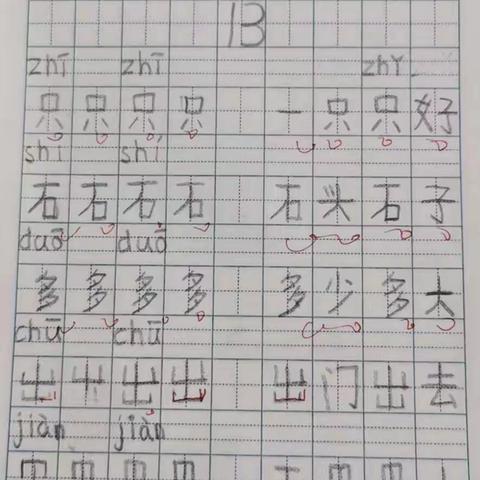 13
zhī zhī zhǐ
只 只 只 只 一 只 只 好
shí shí
石 石 石 石 石 头 石 子
duō duō
多 多 多 多 多 少 多 大
chū chū
出 出 出 出 门 出 去
jiàn jiàn